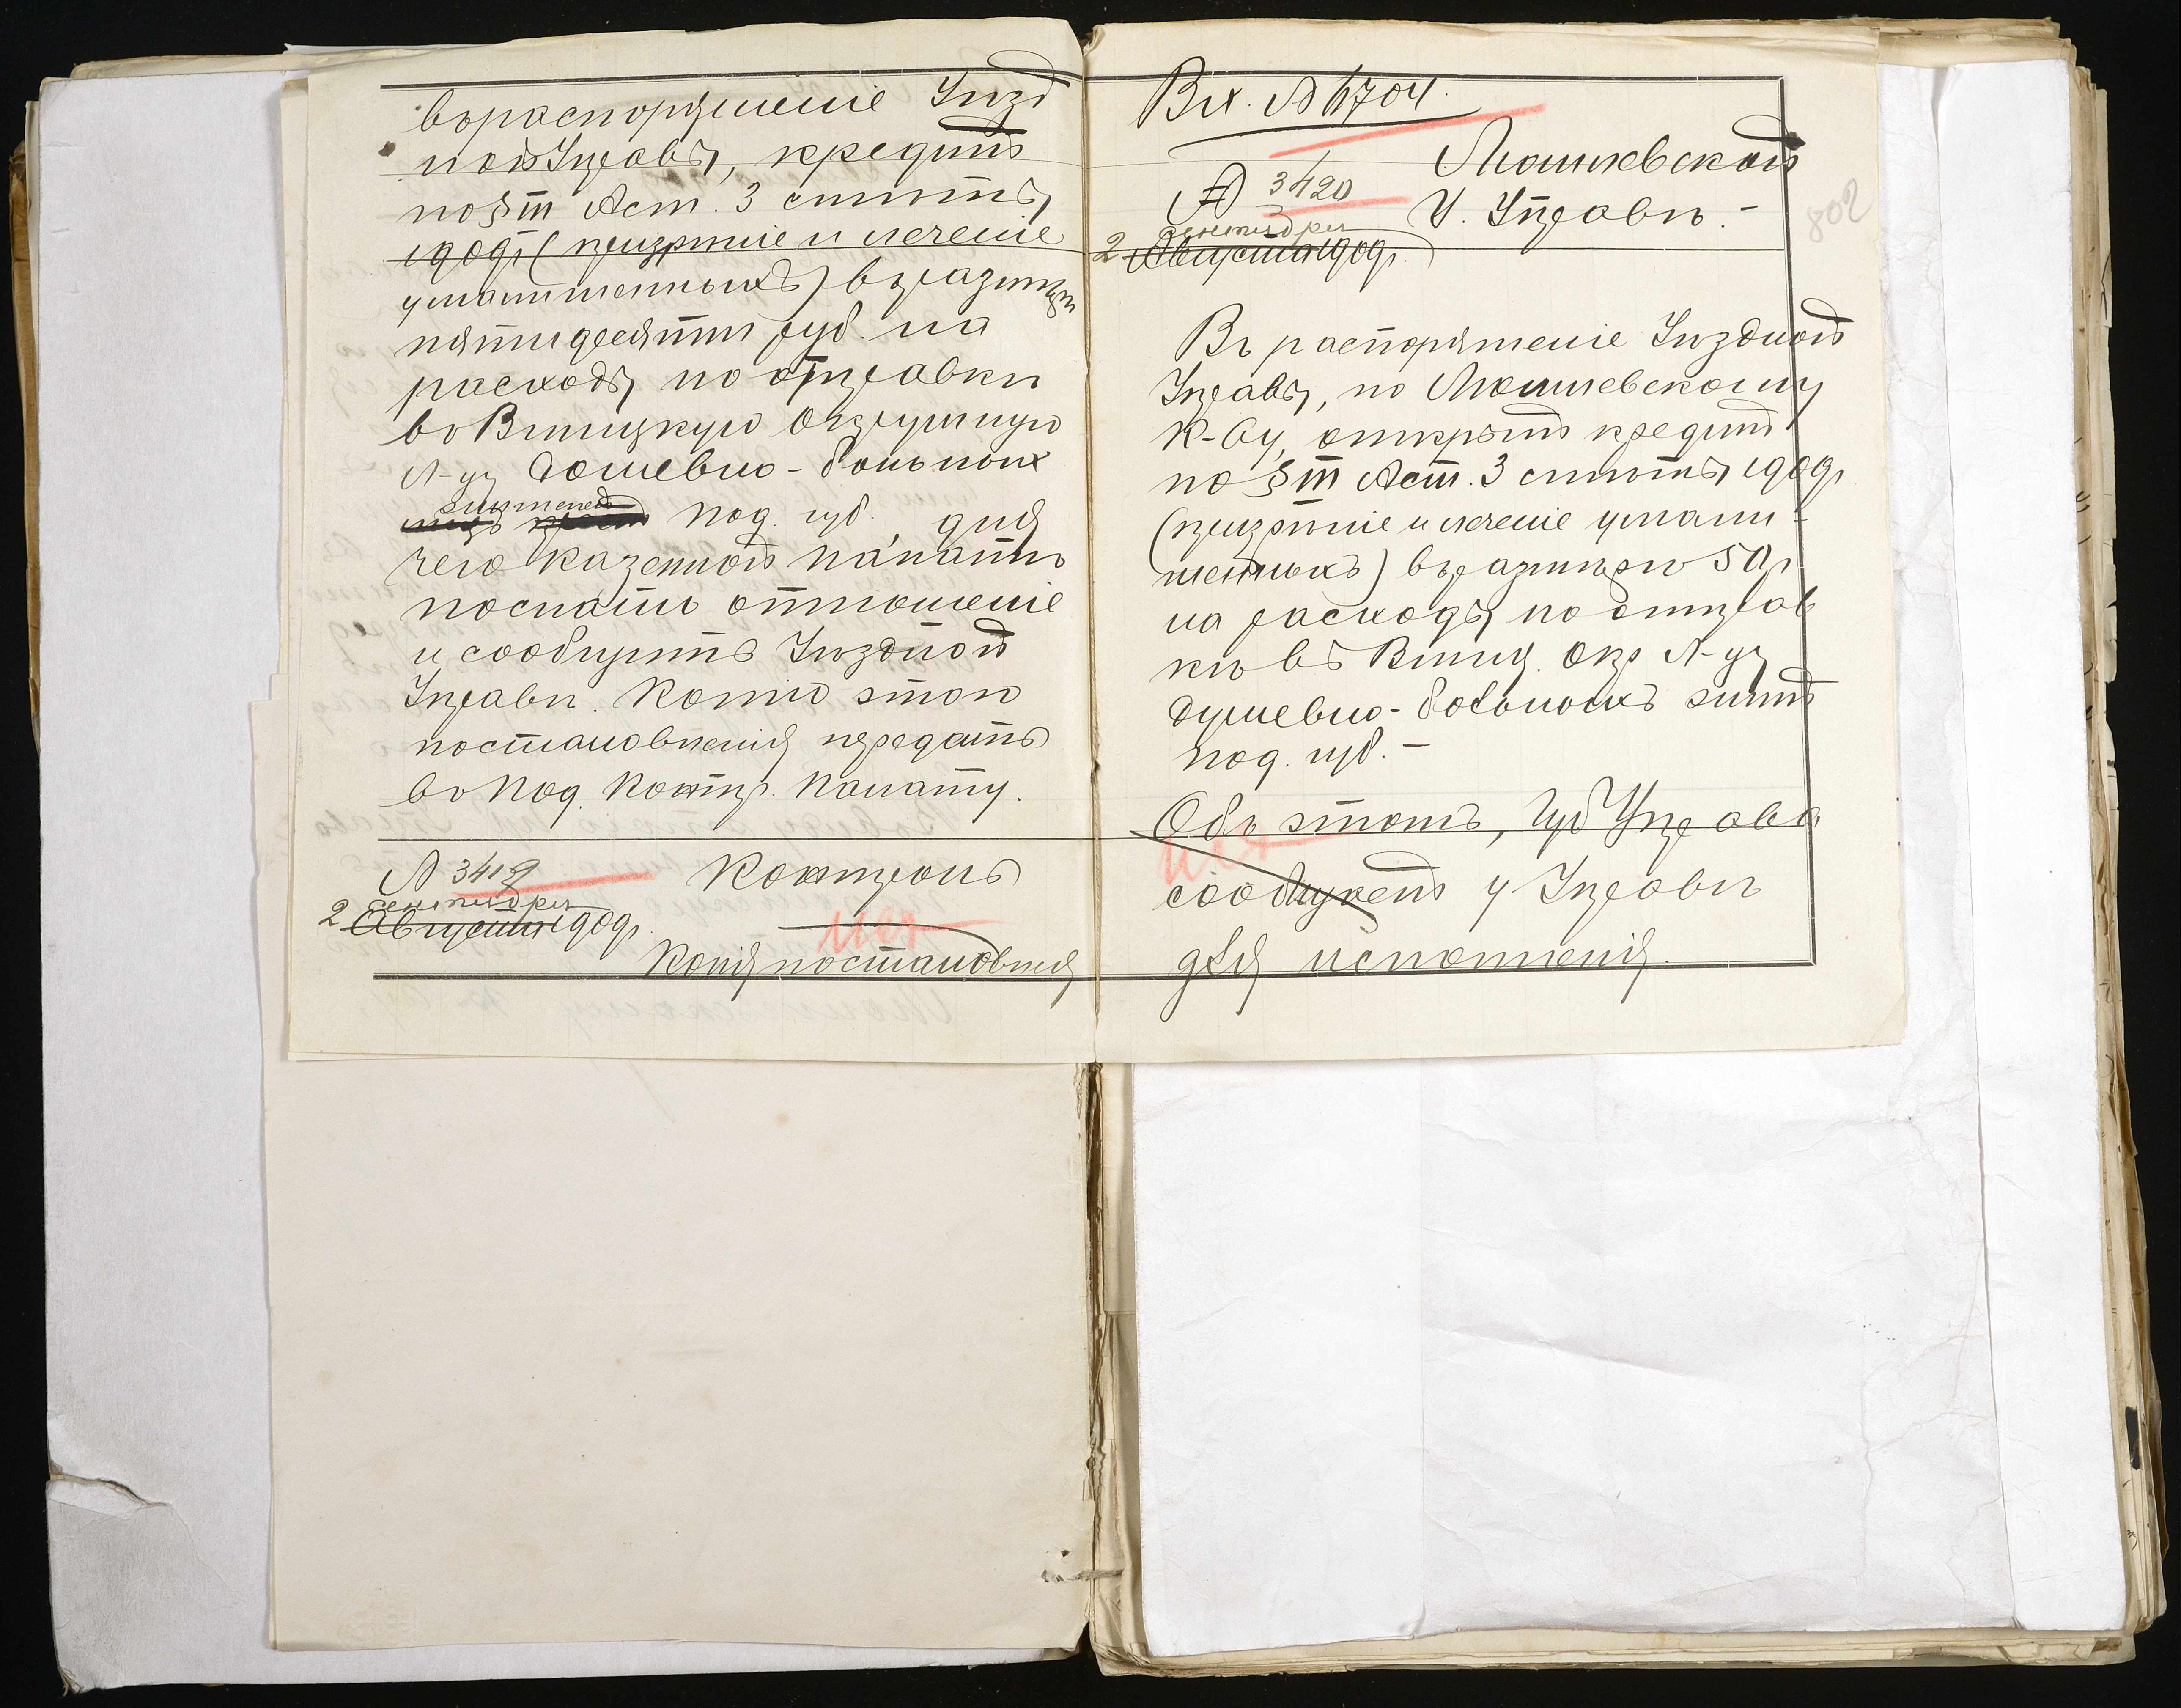 въ распоряженіе Уѣзд
ной Управы, кредитъ
по § III Лст. 3 смѣты
1909 г (призрѣніе и леченіе
умалишенныхъ) въ размѣрѣ
пятидесяти руб. на
расходы по отправкѣ
въ Винницкую Окружную
Л-цу Душевно-больныхъ
жителей Под. губ. для
чего Казенной Палатѣ
послать отношеніе
и сообщить Уѣздной
Управѣ. Копію этого
постановленія передать
въ Под. Контр. Палату.
№ 3419 Контроль
Сентября
2 Августа 1909 г. исх
Копія постановленія
Вх. № 6704.
№ 3420
У. Управѣ. -
802
Сентября
2 Августа 1909 г.
Въ распоряженіе Уѣздной
Управы, по
К-ву, открытъ кредитъ
по § III Лст. 3 смѣты 1909 г
(призрѣніе и леченіе умали-
шенныхъ) въ размѣрѣ 50 р
на расходы по отправ
кѣ въ Винниц. Окр Л-цу
душевно-больныхъ жит
Под. губ. -
Объ этомъ, Губ Управа
исх
сообщаетъ У Управѣ
для исполненія.